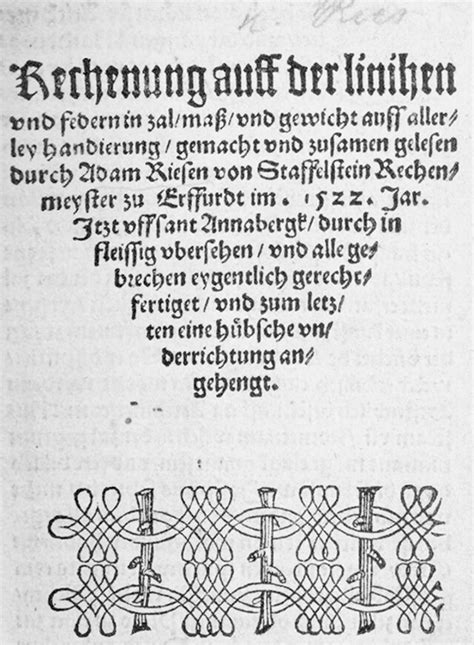 Rechenung auff der linihen
vnd federn in zal/ maß/ vnd gewicht auff aller-
ley handierung/ gemacht vnd zusamen gelesen
durch Adam Riesen von Staffelstein Rechen-
meyster zu Erffurdt im . 1522. Jar.
Itzt vffsant Annabergk/ durch in
fleissig vbersehen/ vnd alle ge-
brechen eygentlich gerecht-
fertiget/ vnd zum letz-
ten eine hübsche vn-
derrichtung an-
gehengt.